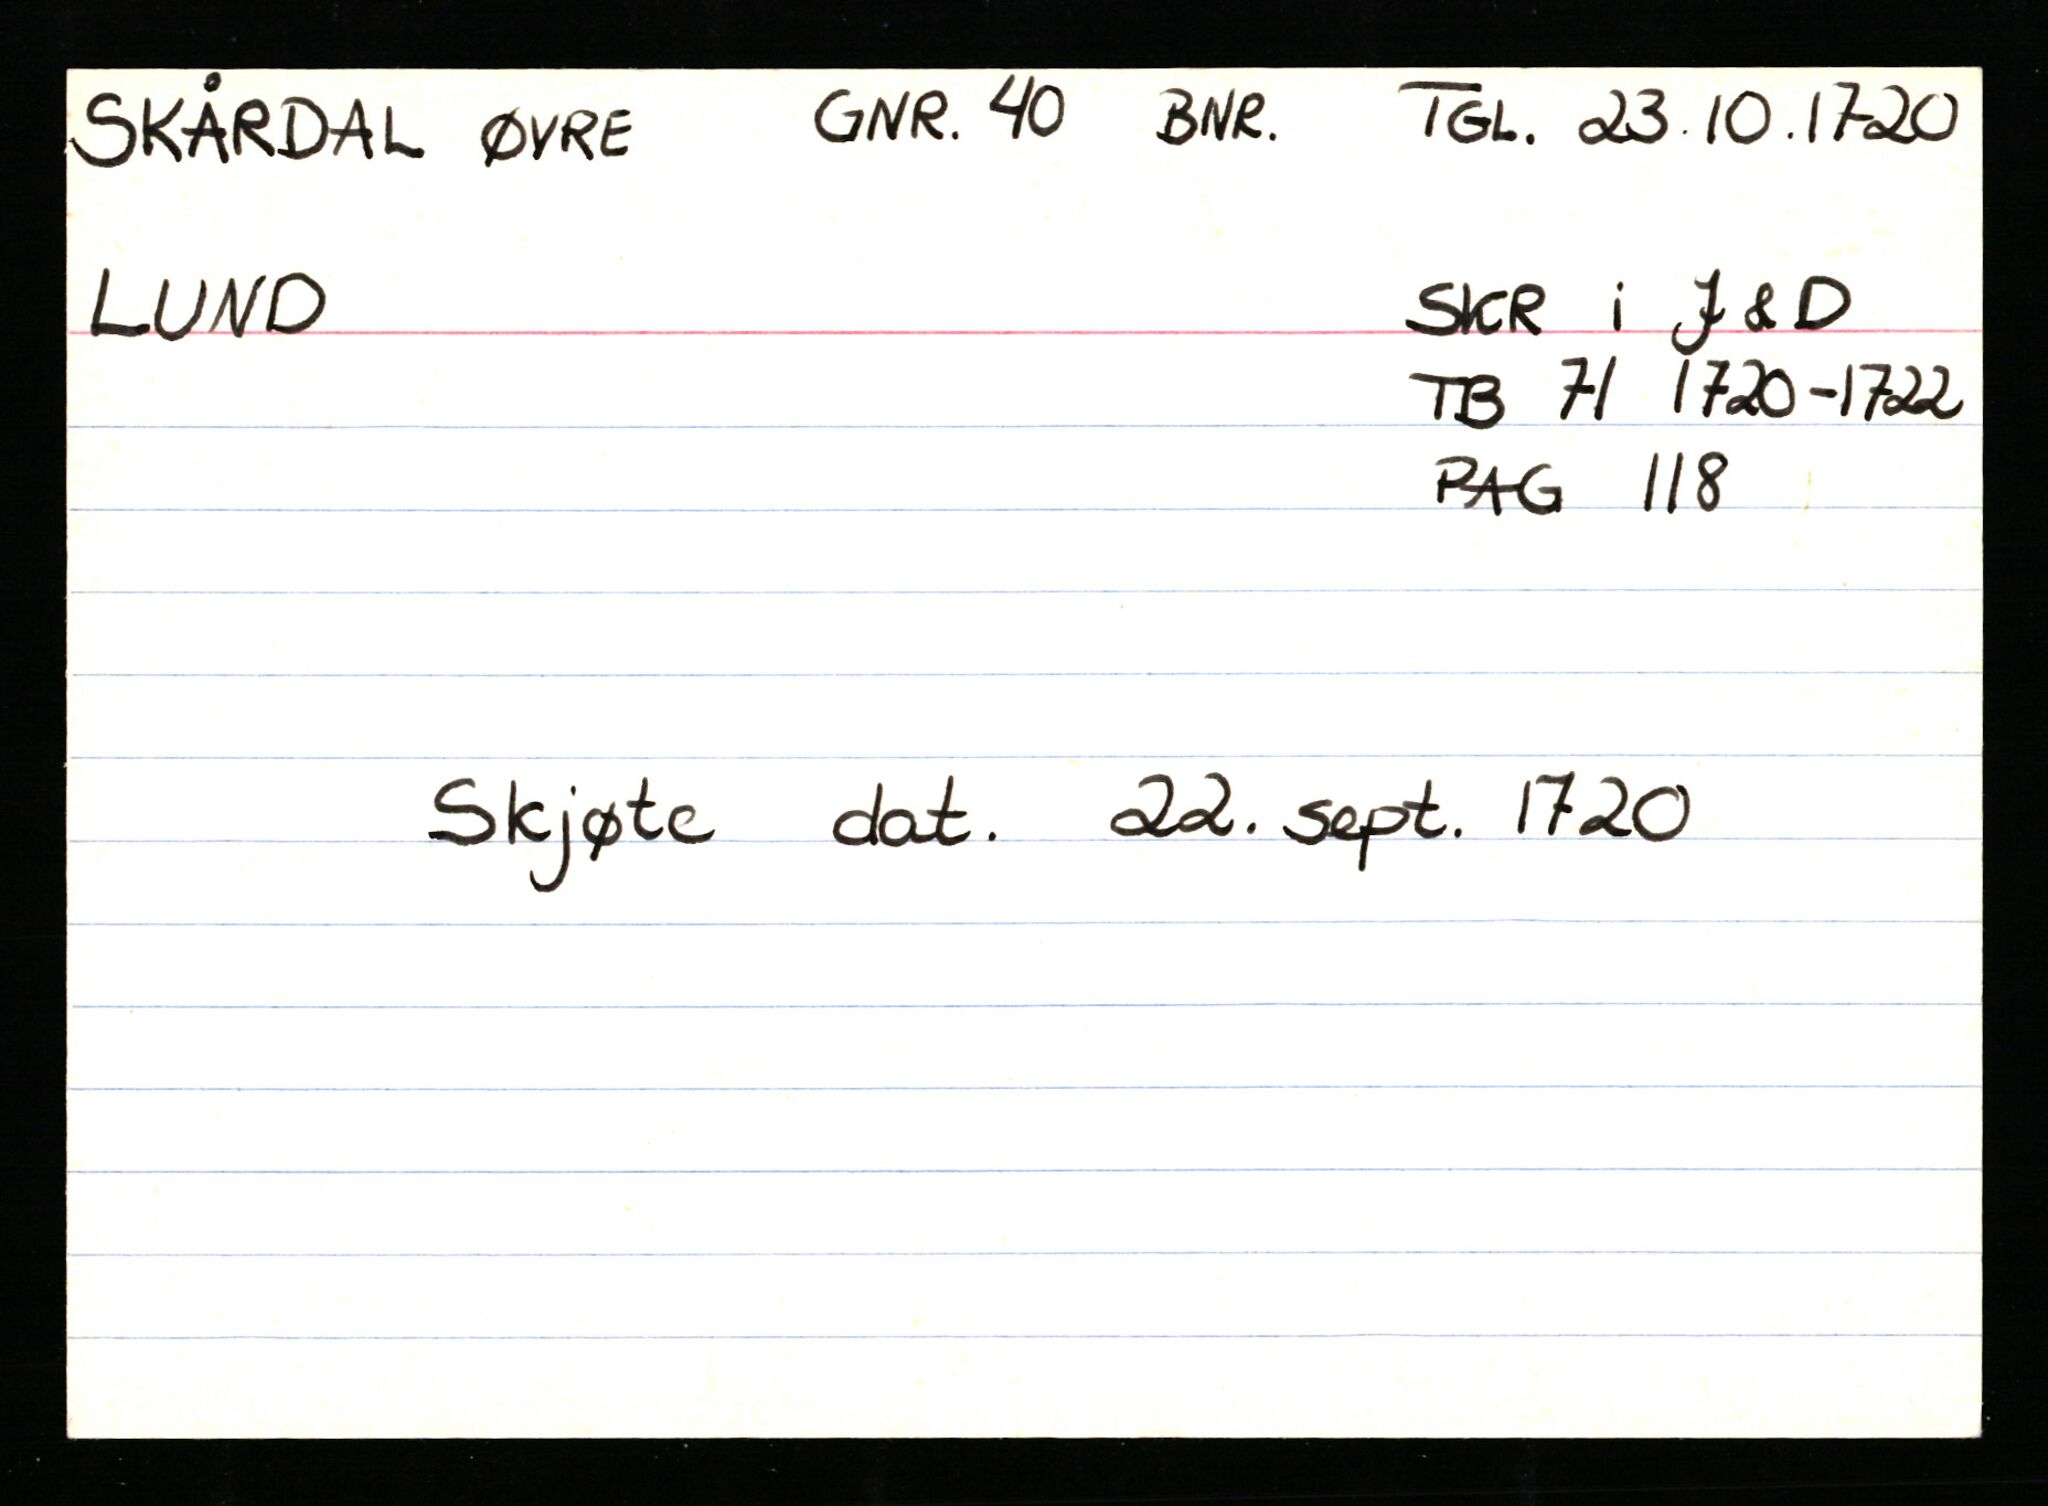 SKÅRDAL ØVRE GNR. 40 BNR. TGL. 23.10.1720
LUND SKR i J & D
TB 71 1720-1722
PAG 118
Skjøte dat. 22. sept. 1720